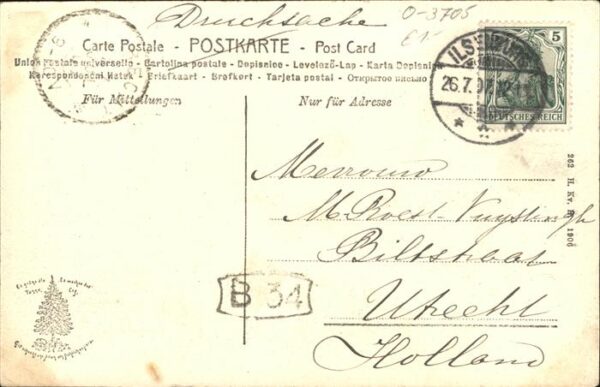 Drucksache
0-3705
Carte Postale - POSTKARTE - Post Card
Union postale universelle - Cartolina postale - Dopisnice - Levelező-Lap - Karta Dopisnica
Korespondenční lístek - Briefkaart - Brefkort - Tarjeta postal - Открытое письмо
Für Mitteilungen
Nur für Adresse
5
DEUTSCHES REICH
ILSENBURG
26.7.
Mevrouw
M. Roest-Vuystingh
Biltstraat
Utrecht
Holland
B 34
262 H. Kv. B. 1906